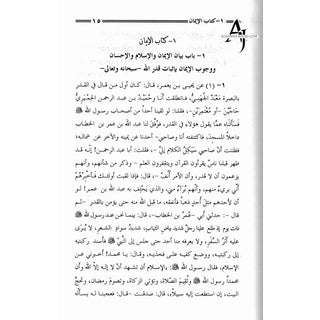 ١- كتاب الإيمان
١٥
١- كتاب الإيمان
١- باب بيان الإيمان والإسلام والإحسان
ووجوب الإيمان بإثبات قدر الله -سبحانه وتعالى-
١- (١) عن يحيى بن يعمر، قال: كان أول من قال في القدر
بالبصرة معبد الجهني، فانطلقت أنا وحميد بن عبد الرحمن الحميري
حاجين -أو معتمرين-، فقلنا: لو لقينا أحداً من أصحاب رسول الله ﷺ
فسألناه عما يقول هؤلاء في القدر، فوفق لنا عبد الله بن عمر بن الخطاب
داخلاً المسجد، فاكتنفته أنا وصاحبي، أحدنا عن يمينه والآخر عن شماله؛
فظننت أن صاحبي سيكل الكلام إلي، فقلت: أبا عبد الرحمن! إنه قد
ظهر قبلنا ناس يقرأون القرآن ويتقفرون العلم -وذكر من شأنهم، وأنهم
يزعمون أن لا قدر، وأن الأمر أنف-، قال: فإذا لقيت أولئك فأخبرهم
أني بريء منهم، وأنهم برآء مني، والذي يحلف به عبد الله بن عمر! لو
أن لأحدهم مثل أحد ذهباً فأنفقه ما قبل الله منه حتى يؤمن بالقدر، ثم
قال: حدثني أبي -عمر بن الخطاب-، قال: بينما نحن عند رسول الله ﷺ
ذات يوم إذ طلع علينا رجل شديد بياض الثياب، شديد سواد الشعر، لا يرى
عليه أثر السفر، ولا يعرفه منا أحد حتى جلس إلى النبي ﷺ فأسند ركبتيه
إلى ركبتيه، ووضع كفيه على فخذيه، وقال: يا محمد! أخبرني عن
الإسلام، فقال رسول الله ﷺ: «الإسلام أن تشهد أن لا إله إلا الله وأن
محمداً رسول الله ﷺ، وتقيم الصلاة، وتؤتي الزكاة، وتصوم رمضان، وتحج
البيت، إن استطعت إليه سبيلاً»، قال: صدقت -قال: فعجبنا له يسأله